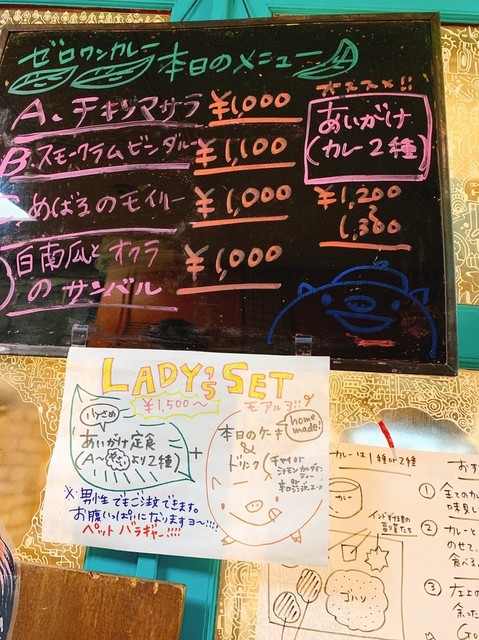 ゼロワンカレー 本日のメニュー
A. チキンマサラ ¥1,000
B. スモークラムビンダルー ¥1,100
めばるのモイリー ¥1,000
白南瓜とオクラ
のサンバル ¥1,000
オススメ!!
あいがけ
(カレー2種)
¥1,200
〜
1,300
LADY'S SET
¥1,500〜
あいがけ定食
より2種)
+
モアルヨ!!
home
made!
本日のケーキ
&
ドリンク
※男性でもご注文できます。
お腹いっぱいになりますヨ〜!!!
ペットバラギャー!!!!
カレーは1種or2種
カレー
ゴハン
おす
① 全てのカ
味見し
② カレーと
のせて、
食べる
③ 左上の
余った